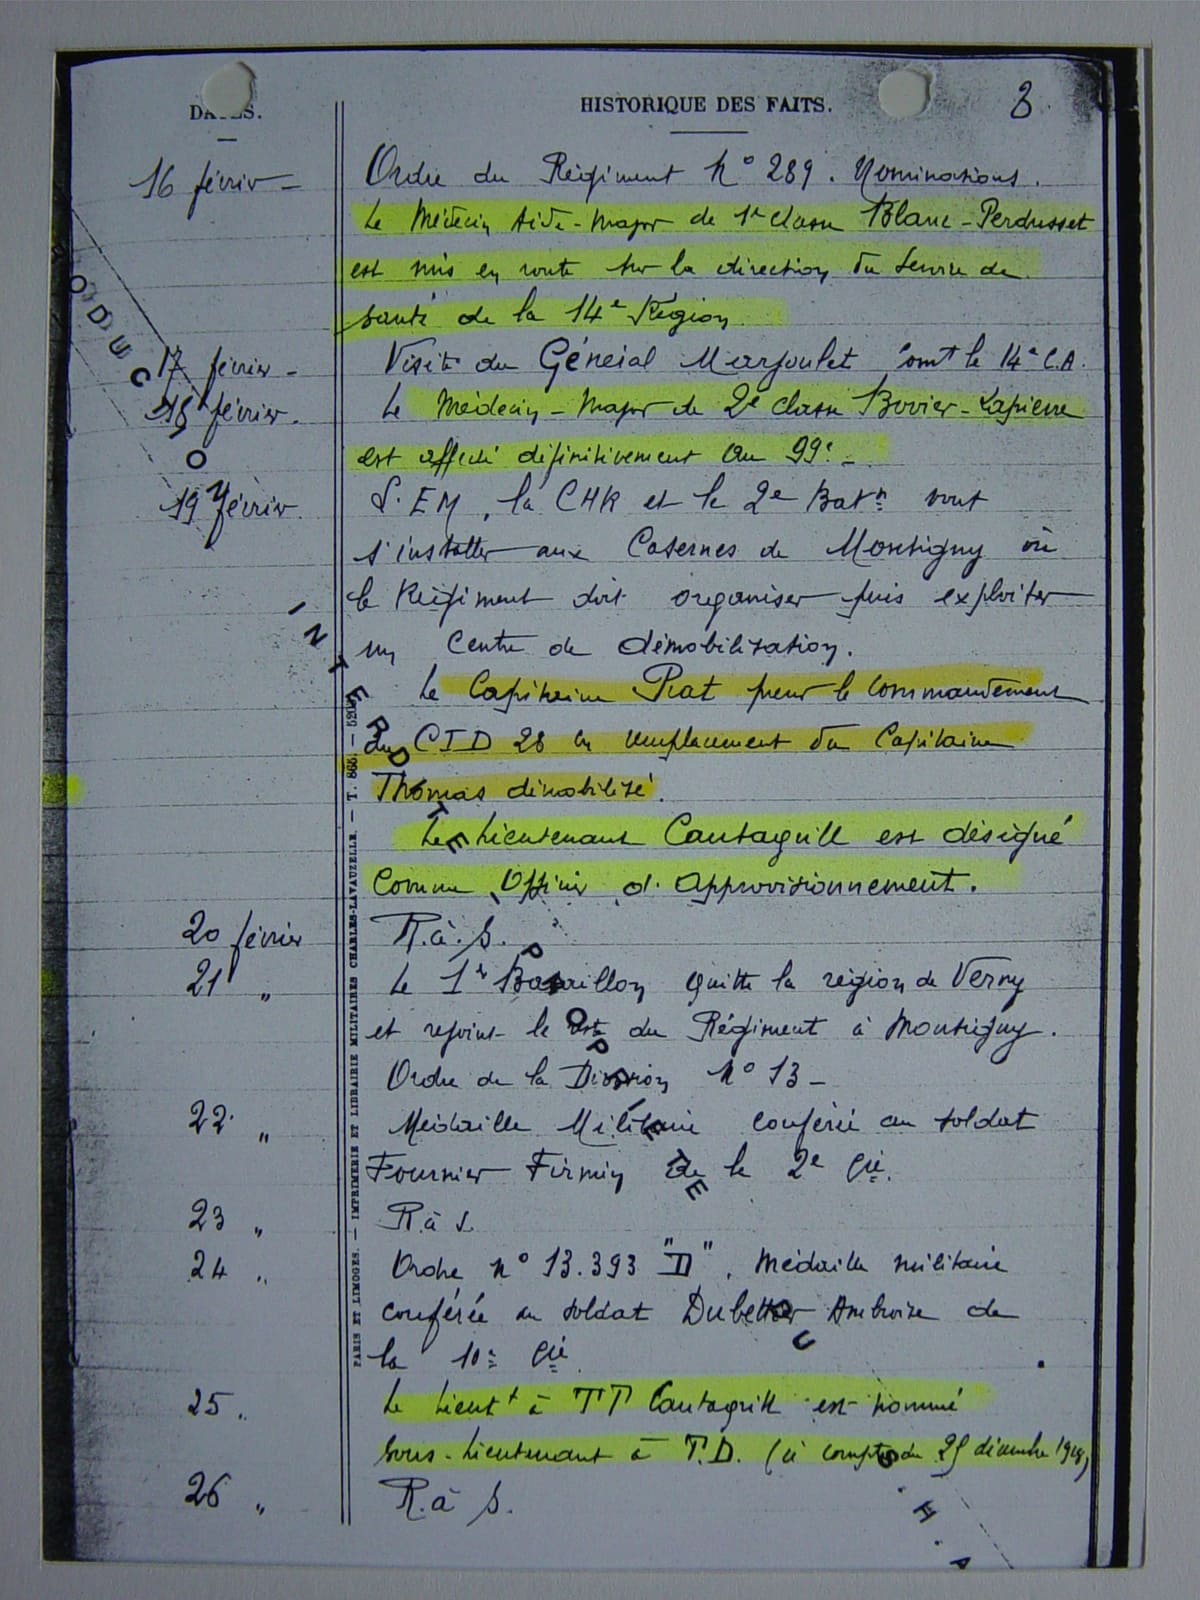 DATES.
HISTORIQUE DES FAITS.
8
16 février - Ordre du Régiment N° 289. Nominations.
Le Médecin Aide-Major de 1e classe Blanc-Perdusset
est mis en route sur la direction du Service de
santé de la 14e Région
17 février - Visite du Général Marjoulet Comt le 14e C.A.
18 février. Le Médecin-Major de 2e classe Bovier-Lapierre
est affecté définitivement au 99e -
19 février L'EM, la CHR et le 2e Batn vont
s'installer aux Casernes de Montigny où
le Régiment doit organiser puis exploiter
un Centre de démobilisation.
Le Capitaine Prat prend le commandement
du CID 28 en remplacement du Capitaine
Thomas démobilisé.
Le Lieutenant Cantagrill est désigné
comme Officier d'Approvisionnement.
20 février R.à.S.
21 " Le 1er Bataillon quitte la région de Verny
et rejoint le reste du Régiment à Montigny.
Ordre de la Division N° 13 -
22 " Médaille Militaire conférée au soldat
Fournier Firmin de la 2e Cie.
23 " R.à S.
24 " Ordre n° 13.393 "D". Médaille militaire
conférée au soldat Ambroise de
la 10e Cie
25 " Le Lieutt à TT Cantagrill est nommé
sous-Lieutenant à T.D. (à compter du 25 décembre 1918)
26 " R.à S.
PARIS ET LIMOGES. — IMPRIMERIE ET LIBRAIRIE MILITAIRES CHARLES-LAVAUZELLE. — T. 865. —
ODUCTION INTERDITE PROPRIETE DU S.H.A